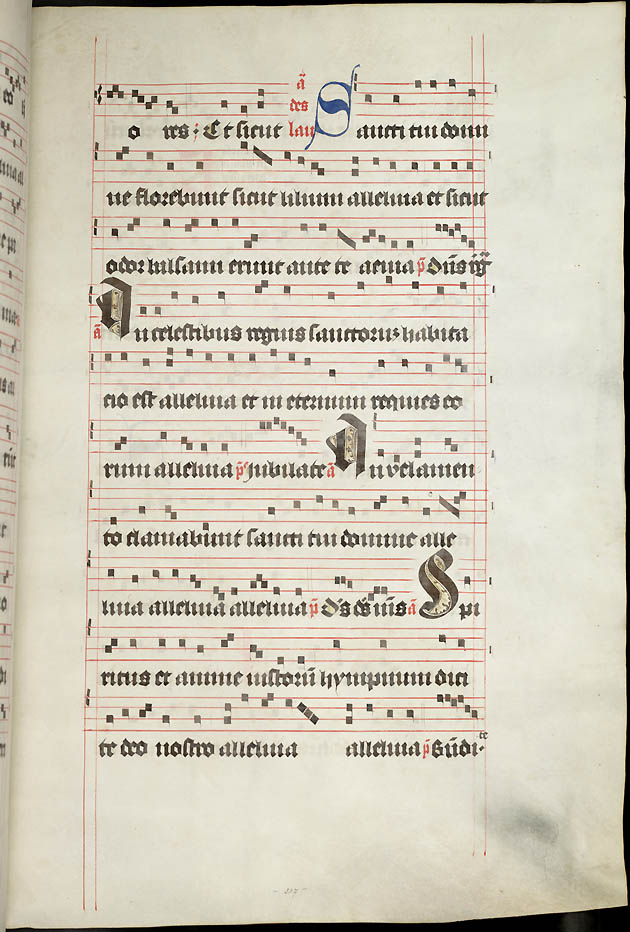 ã
des
o res : Et sicut lau Sancti tui domi
ne florebunt sicut lilium alleluia et sicut
odor balsami erunt ante te aeuia p̃ Dñs rg̃
ã In celestibus regnis sanctorum habita
cio est alleluia et in eternum requies eo
rum alleluia p̃ Jubilate ã In velamen
to clamabunt sancti tui domine alle
luia alleluia alleluia p̃ Ds ds m̃s ã Spi
ritus et anime iustorũ hympnum dici
te deo nostro alleluia alleluia p̃ Bñdi. te